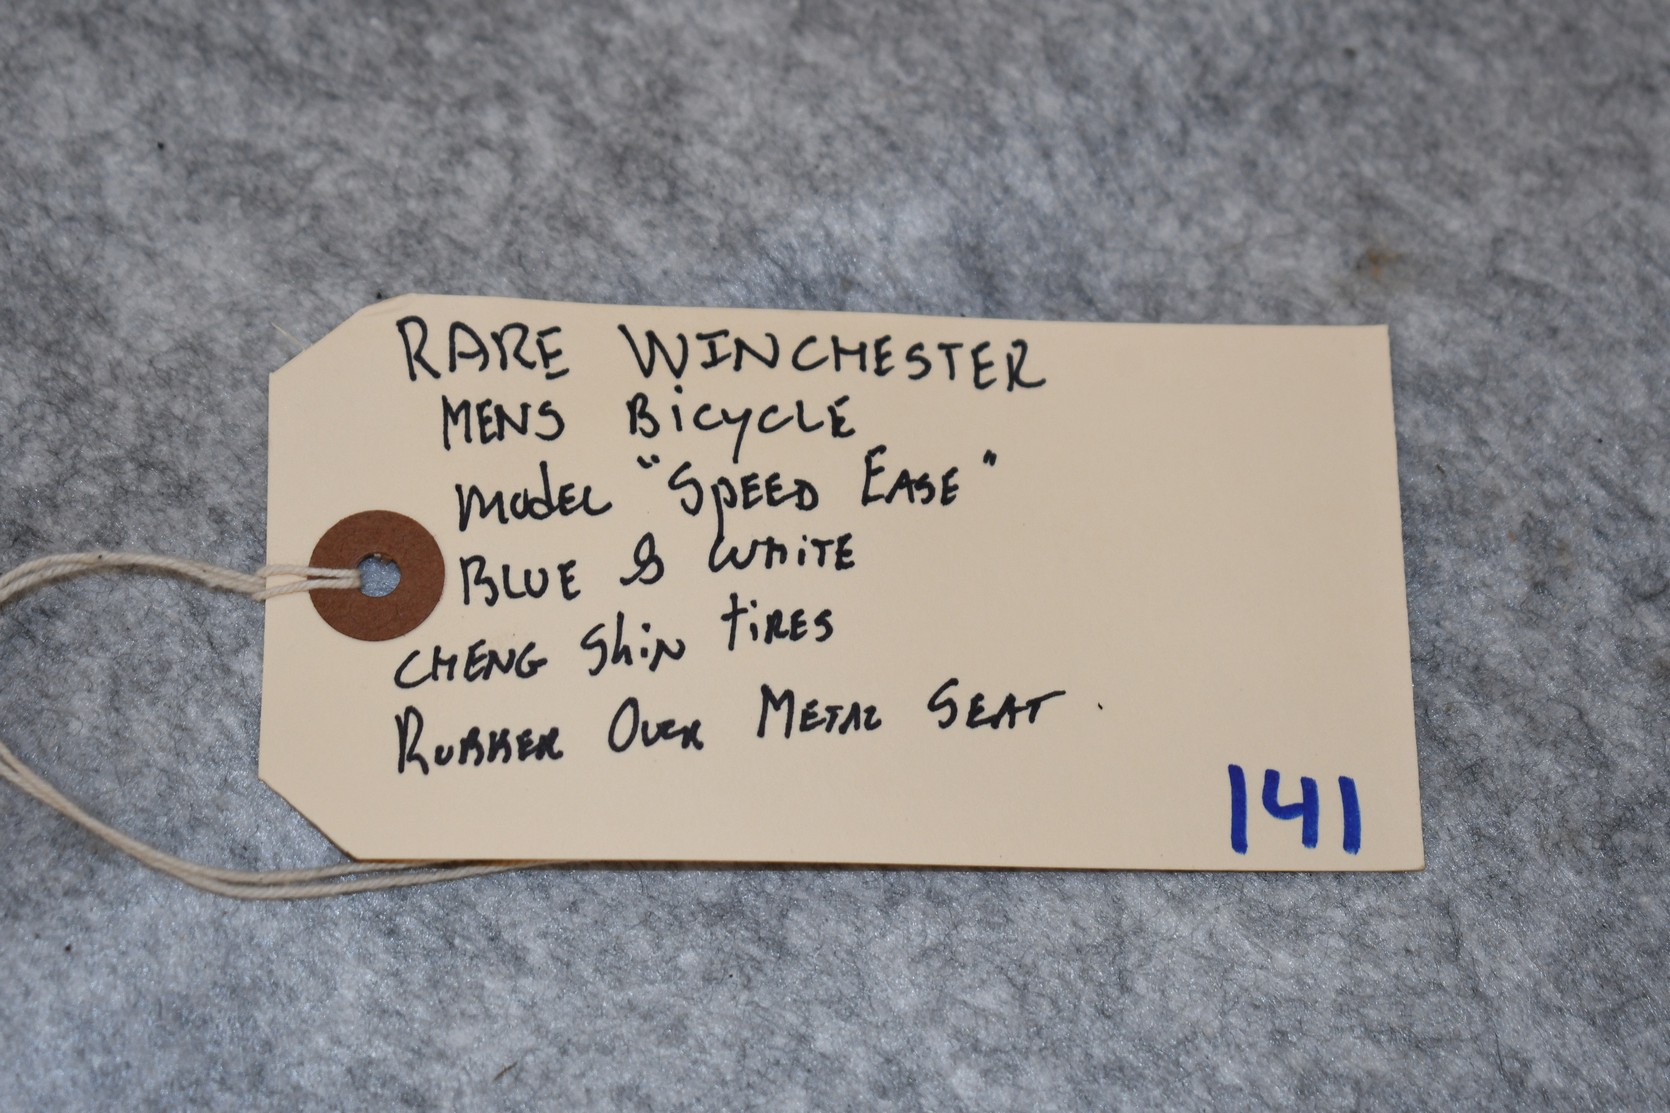 RARE WINCHESTER
MENS BicycLE
Model "Speed Ease"
BLUE & WHiTE
CHENG Shin tiRES
Rubber Over Metal Seat.
141